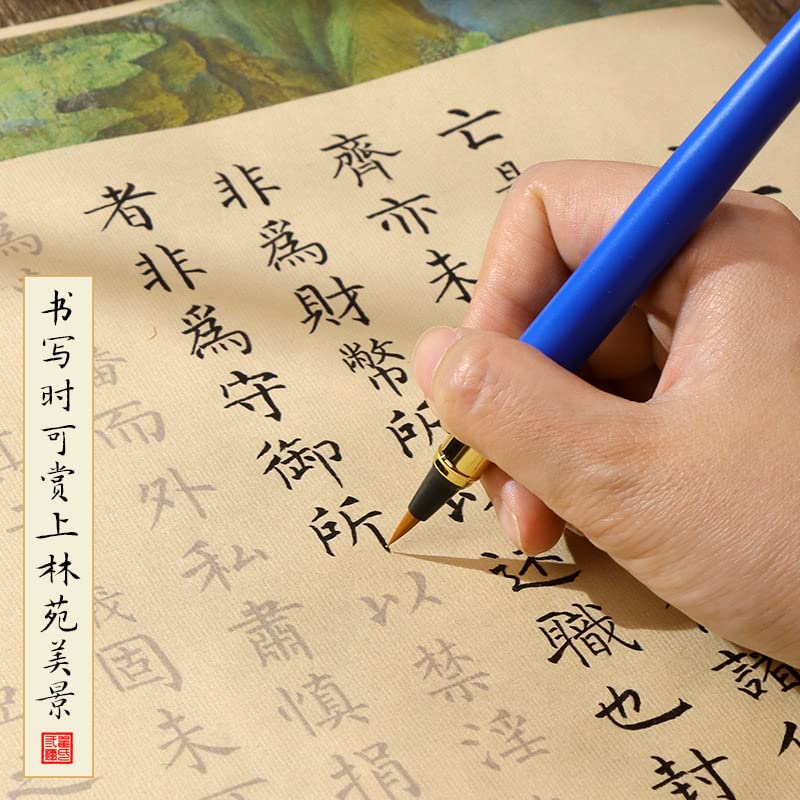 亡是
齊亦未諸
非爲財幣所以述職也封
者非爲守御所以禁淫
爲
藩而外私肅慎捐
義固未
书写时可赏上林苑美景